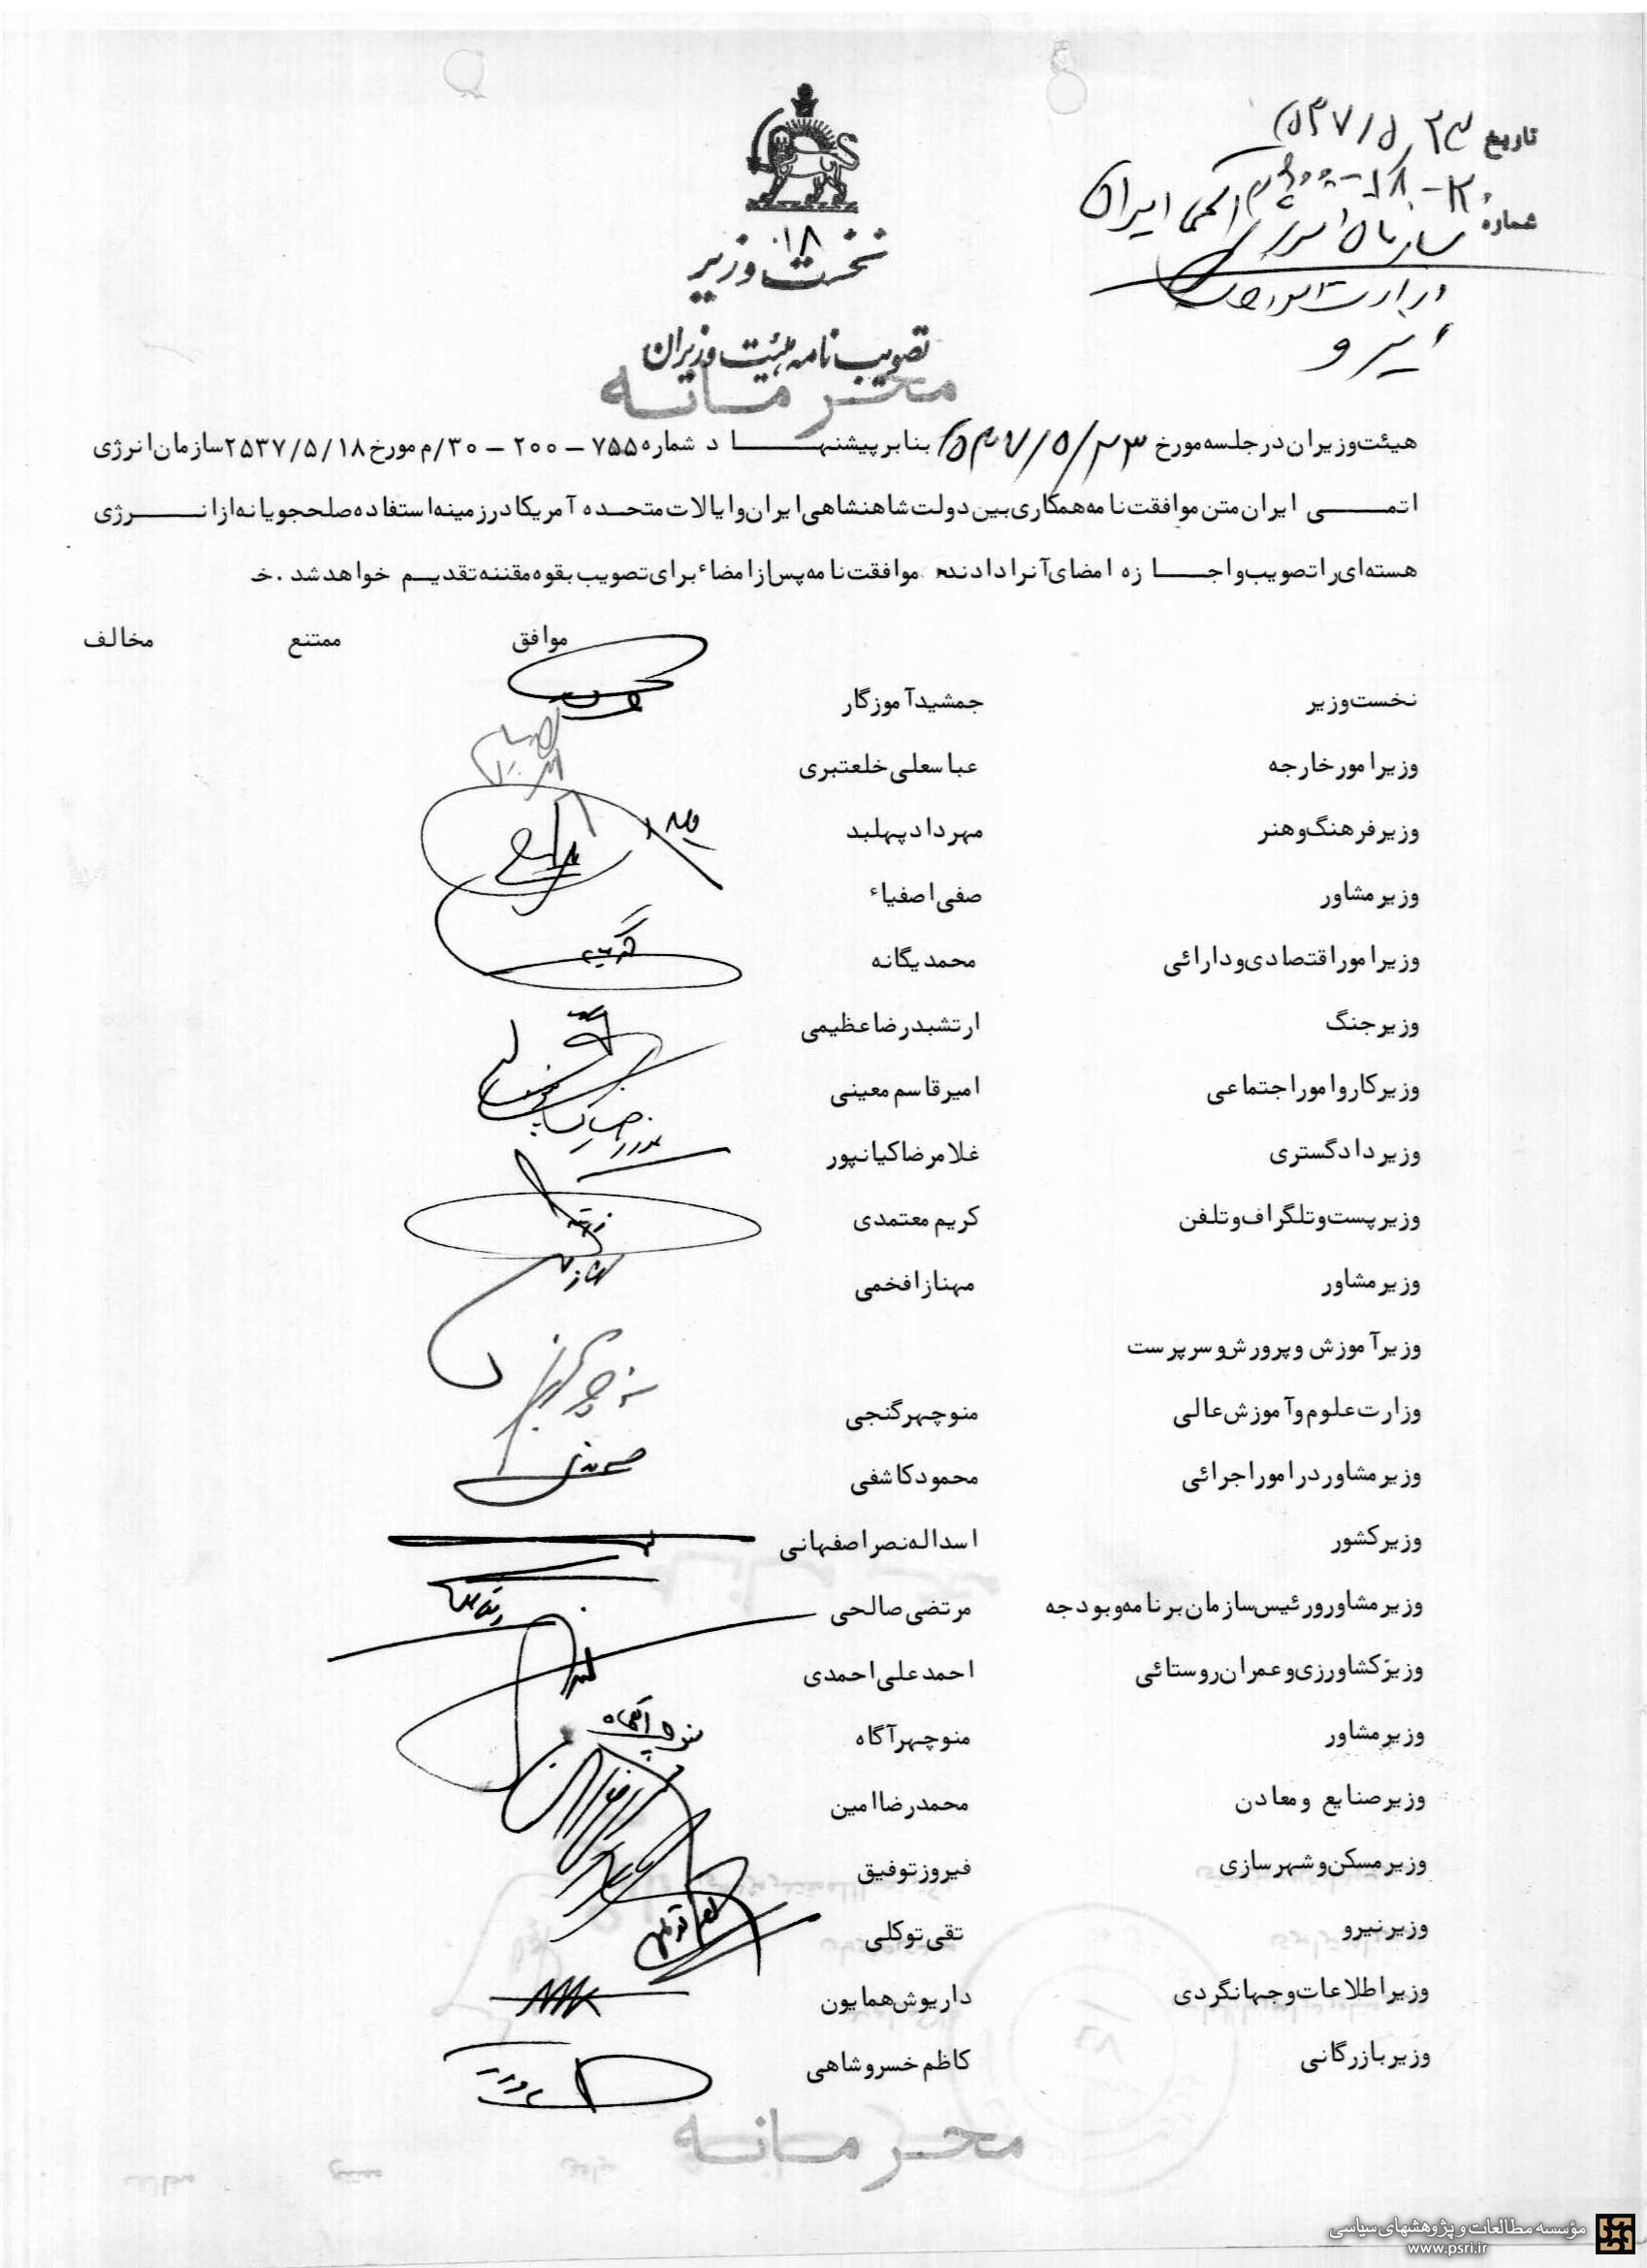 تاریخ ۲۵۳۷/۵/۲۳
شماره
سازمان انرژی اتمی ایران
وزارت امور خارجه
نیرو
نخست وزیر
تصویب نامه هیئت وزیران
محرمانه
هیئت وزیران در جلسه مورخ ۲۵۳۷/۵/۲۳ بنا بر پیشنهاد شماره ۷۵۵ – ۲۰۰ – ۳۰/م مورخ ۲۵۳۷/۵/۱۸ سازمان انرژی
اتمی ایران متن موافقت نامه همکاری بین دولت شاهنشاهی ایران و ایالات متحده آمریکا در زمینه استفاده صلحجویانه از انرژی
هسته ای را تصویب و اجازه امضای آنرا دادند موافقت نامه پس از امضاء برای تصویب بقوه مقننه تقدیم خواهد شد . خ
موافق ممتنع مخالف
نخست وزیر جمشید آموزگار
وزیر امور خارجه عباسعلی خلعتبری
وزیر فرهنگ و هنر مهرداد پهلبد
وزیر مشاور صفی اصفیاء
وزیر امور اقتصادی و دارائی محمد یگانه
وزیر جنگ ارتشبد رضا عظیمی
وزیر کار و امور اجتماعی امیر قاسم معینی
وزیر دادگستری غلامرضا کیانپور
وزیر پست و تلگراف و تلفن کریم معتمدی
وزیر مشاور مهناز افخمی
وزیر آموزش و پرورش و سرپرست
وزارت علوم و آموزش عالی منوچهر گنجی
وزیر مشاور در امور اجرائی محمود کاشفی
وزیر کشور اسداله نصر اصفهانی
وزیر مشاور و رئیس سازمان برنامه و بودجه مرتضی صالحی
وزیر کشاورزی و عمران روستائی احمد علی احمدی
وزیر مشاور منوچهر آگاه
وزیر صنایع و معادن محمد رضا امین
وزیر مسکن و شهرسازی فیروز توفیق
وزیر نیرو تقی توکلی
وزیر اطلاعات و جهانگردی داریوش همایون
وزیر بازرگانی کاظم خسروشاهی
محرمانه
مؤسسه مطالعات و پژوهشهای سیاسی
www.psri.ir